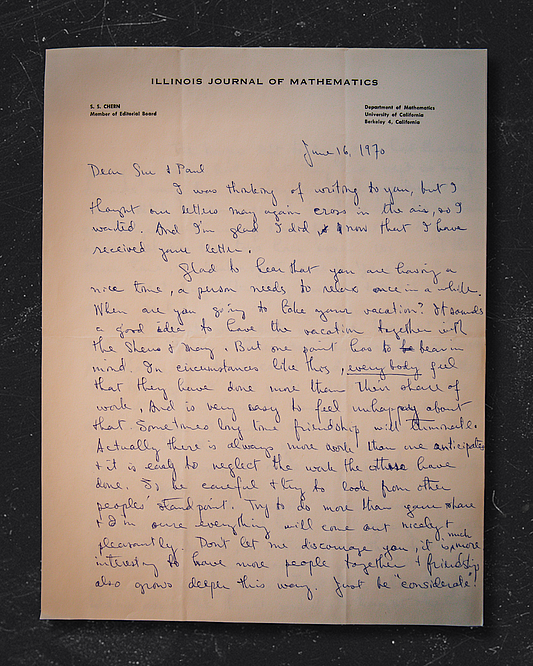 ILLINOIS JOURNAL OF MATHEMATICS
S. S. CHERN
Member of Editorial Board
Department of Mathematics
University of California
Berkeley 4, California
June 16, 1970
Dear Sue & Paul
I was thinking of writing to you, but I
thought our letters may again cross in the air, so I
waited. And I'm glad I did now that I have
received your letter.
Glad to hear that you are having a
nice time, a person needs to relax once in a while.
When are you going to take your vacation? It sounds
a good idea to have the vacation together with
the Shens & . But one point has to bear in
mind. In circumstances like this, everybody feel
that they have done more than their share of
work, And is very easy to feel unhappy about
that. Sometimes long time friendship will terminate.
Actually there is always more work than one anticipates
& it is easy to neglect the work the others have
done. So be careful & try to look from other
peoples' standpoint. Try to do more than your share
& I'm sure everything will come out nicely &
pleasantly. Don't let me discourage you, it is much more
interesting to have more people together & friendship
also grows deeper this way. Just be "considerate".